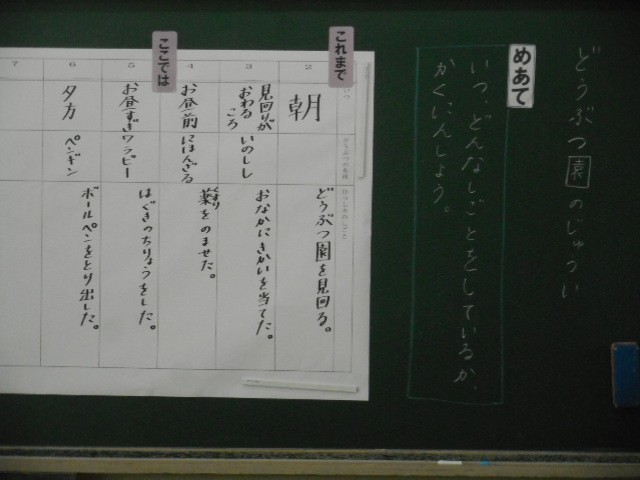 どうぶつ園のじゅうい
めあて
いつ、どんなしごとをしているか、
かくにんしょう。
これまで
ここでは
2
朝
どうぶつ園を見回る。
3
見回りが
おわる
ころ
いのしし
おなかにきかいを当てた。
4
お昼前
にほんざる
薬をのませた。
くすり
5
お昼すぎ
ワラビー
はぐきのちりょうをした。
6
夕方
ペンギン
ボールペンをとり出した。
7